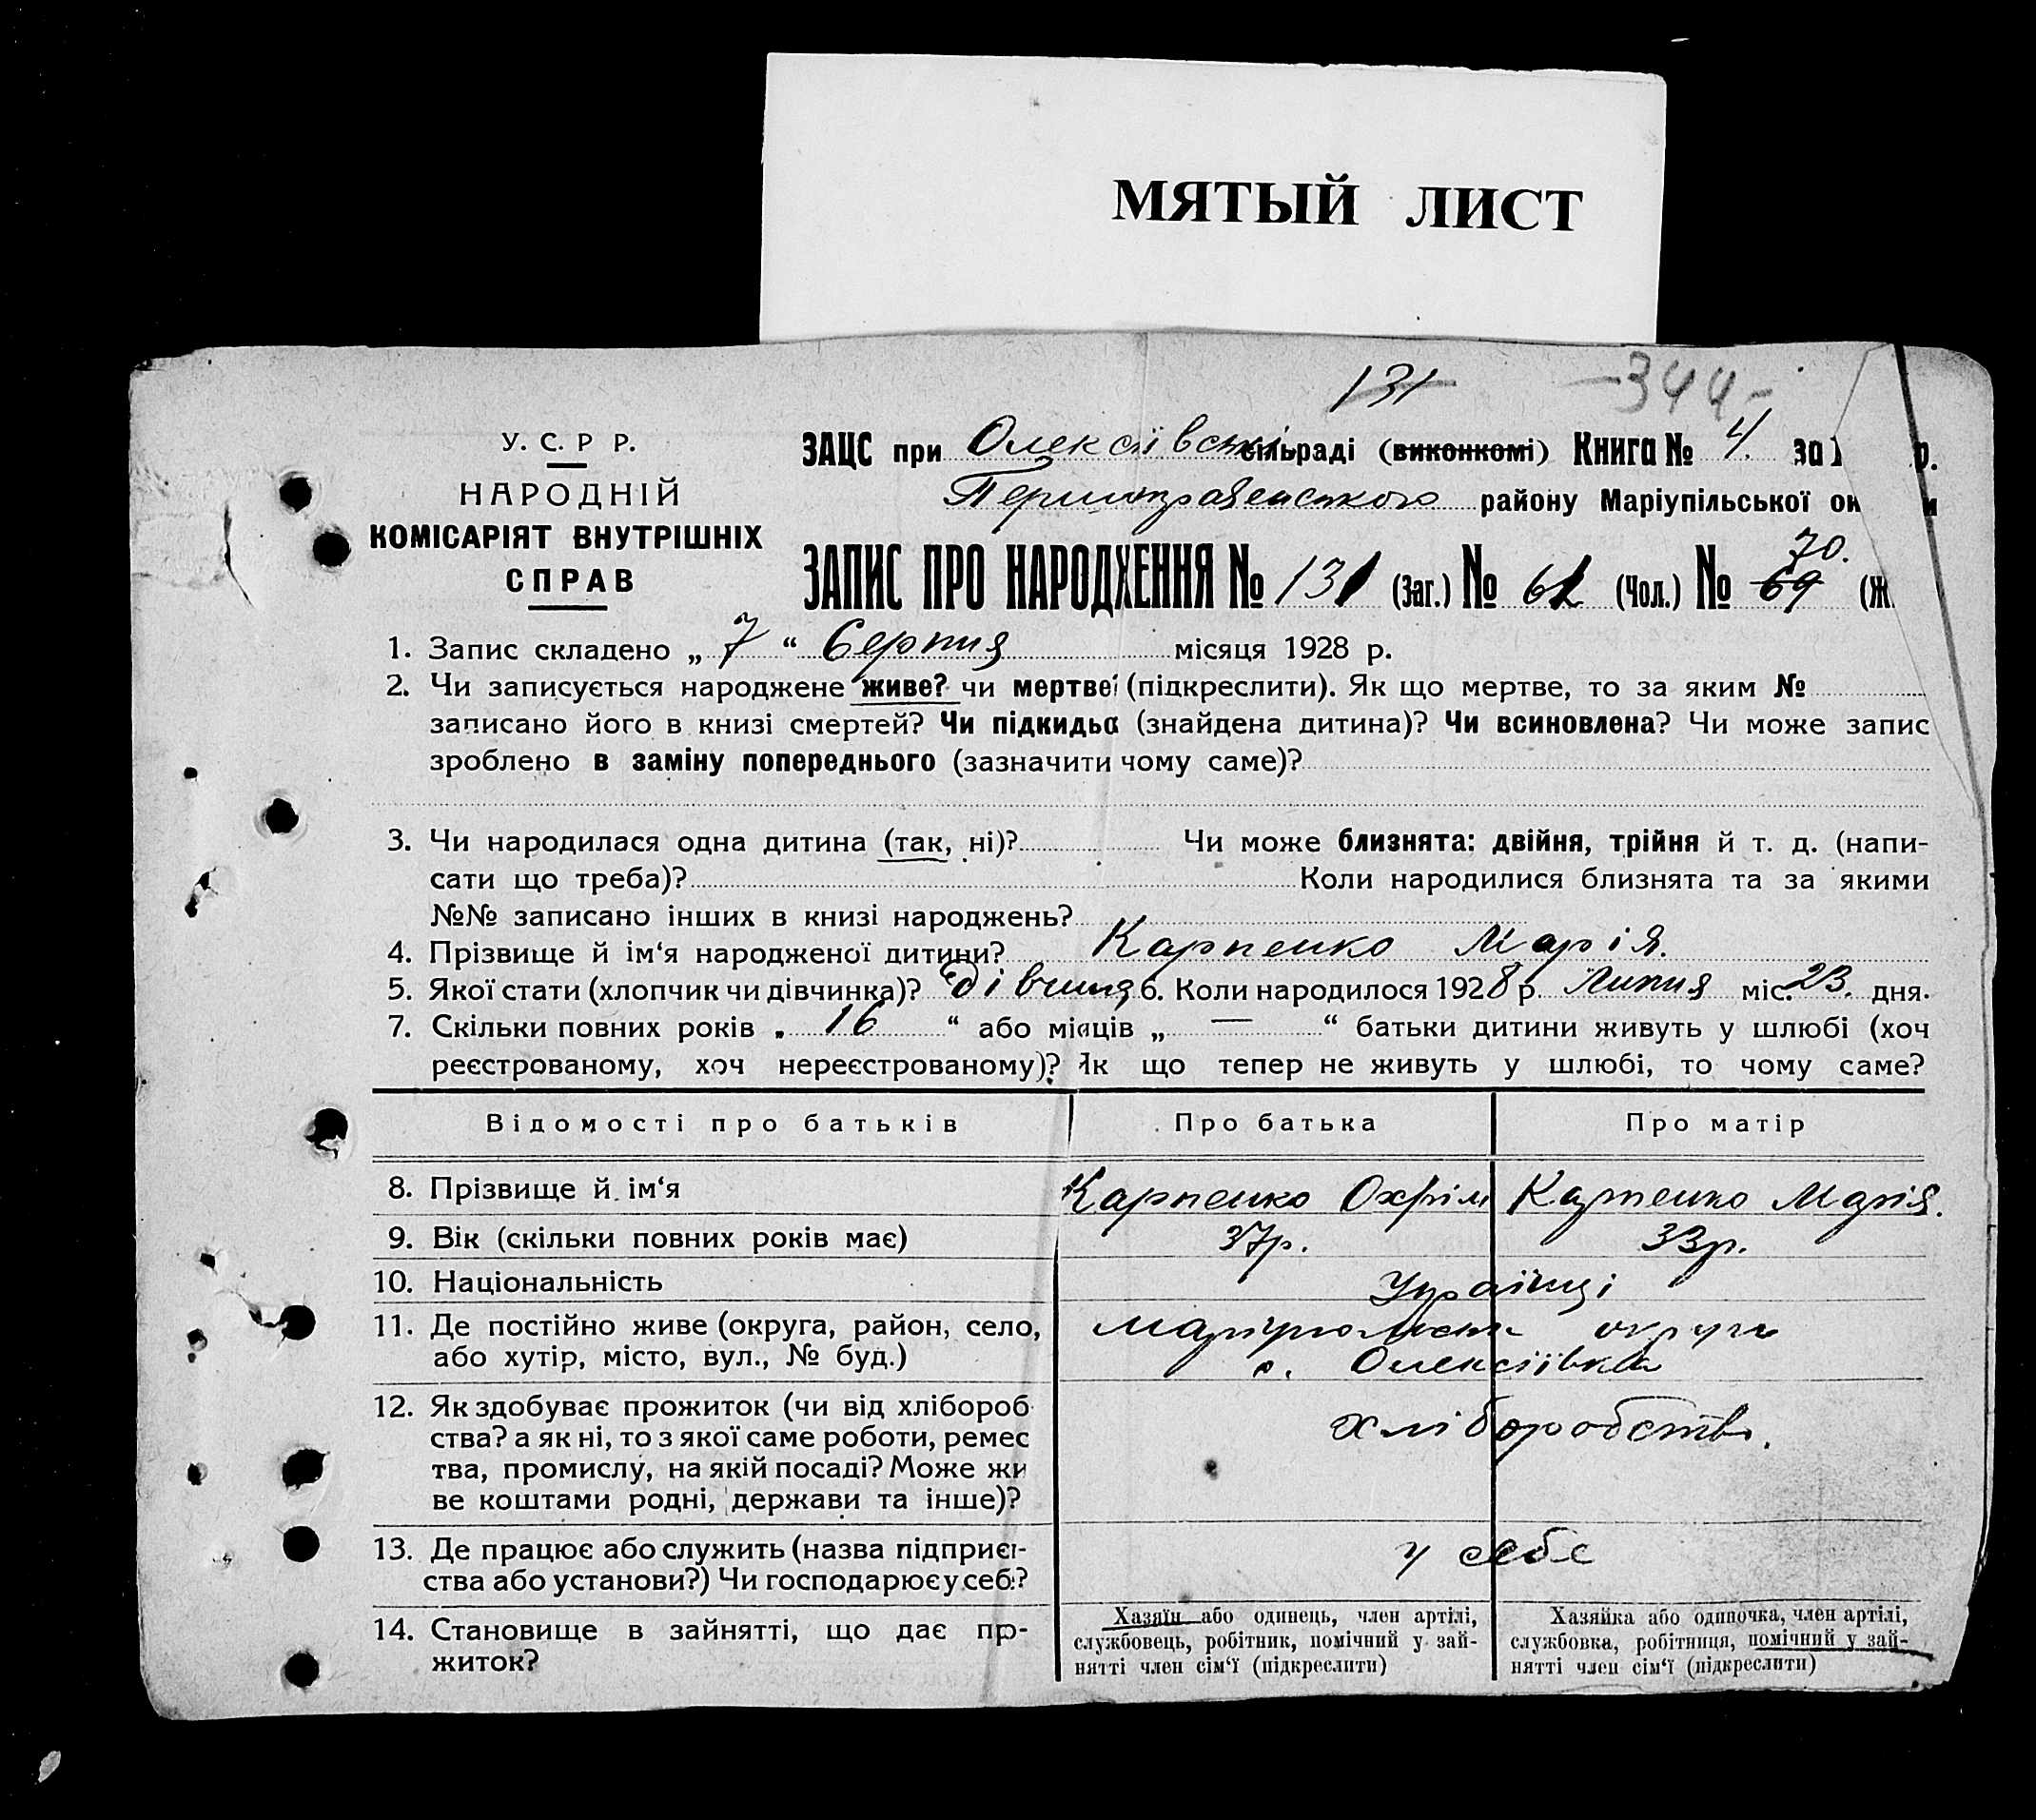 МЯТЫЙ ЛИСТ
131 -344-
У. С. Р Р.
НАРОДНІЙ
КОМІСАРІЯТ ВНУТРІШНІХ
СПРАВ
ЗАЦС при Олексіївській сільраді (виконкомі) Книга № 4. за р.
Першотравенського району Маріупільської ок и
70.
ЗАПИС ПРО НАРОДЖЕННЯ № 131 (Заг.) № 61 (Чол.) № 69 (Ж
1. Запис складено „ 7 “ Серпня місяця 1928 р.
2. Чи записується народжене живе? чи мертве (підкреслити). Як що мертве, то за яким №
записано його в книзі смертей? Чи підкидьа (знайдена дитина)? Чи всиновлена? Чи може запис
зроблено в заміну попереднього (зазначити чому саме)?
3. Чи народилася одна дитина (так, ні)? Чи може близнята: двійня, трійня й т. д. (напи-
сати що треба)? Коли народилися близнята та за якими
№№ записано інших в книзі народжень?
4. Прізвище й ім‘я народженої дитини? Карпенко Марія.
5. Якої стати (хлопчик чи дівчинка)? дівчина 6. Коли народилося 1928 р. Липня міс. 23. дня.
7. Скільки повних років „ 16 “ або місяців „ — “ батьки дитини живуть у шлюбі (хоч
реєстрованому, хоч нереєстрованому)? Як що тепер не живуть у шлюбі, то чому саме?
Відомості про батьків Про батька Про матір
8. Прізвище й ім‘я Карпенко Охрім Карпенко Марія.
9. Вік (скільки повних років має) 37р. 33р.
10. Національність Українці
11. Де постійно живе (округа, район, село,
або хутір, місто, вул., № буд.)
Маріюпольськ округи
с. Олексіївка
12. Як здобуває прожиток (чи від хлібороб
ства? а як ні, то з якої саме роботи, ремес
тва, промислу, на якій посаді? Може жи
ве коштами родні, держави та інше)?
хліборобство.
13. Де працює або служить (назва підприєм-
ства або установи?) Чи господарює у себе?
у себе
14. Становище в зайнятті, що дає про-
житок?
Хазяїн або одинець, член артілі,
службовець, робітник, помічний у зай-
нятті член сім‘ї (підкреслити)
Хазяйка або одиночка, член артілі,
службовка, робітниця, помічний у зай-
нятті член сім‘ї (підкреслити)